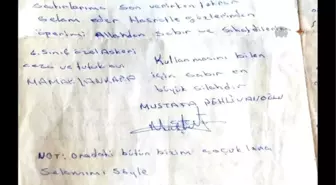 Satırlarıma son verirken tekrar
Selam eder Hasretle gözlerinden
öperim Allahdan Sabır ve
4. Sınıf özel Askeri
Ceza ve tutuk evi
MAMAK/ANKARA
Kullanmasını bilen
için Sabır en
büyük silahdır
MUSTAFA PEHLİVANOĞLU
NOT: Oradaki bütün bizim çocuklara
Selamımı Söyle